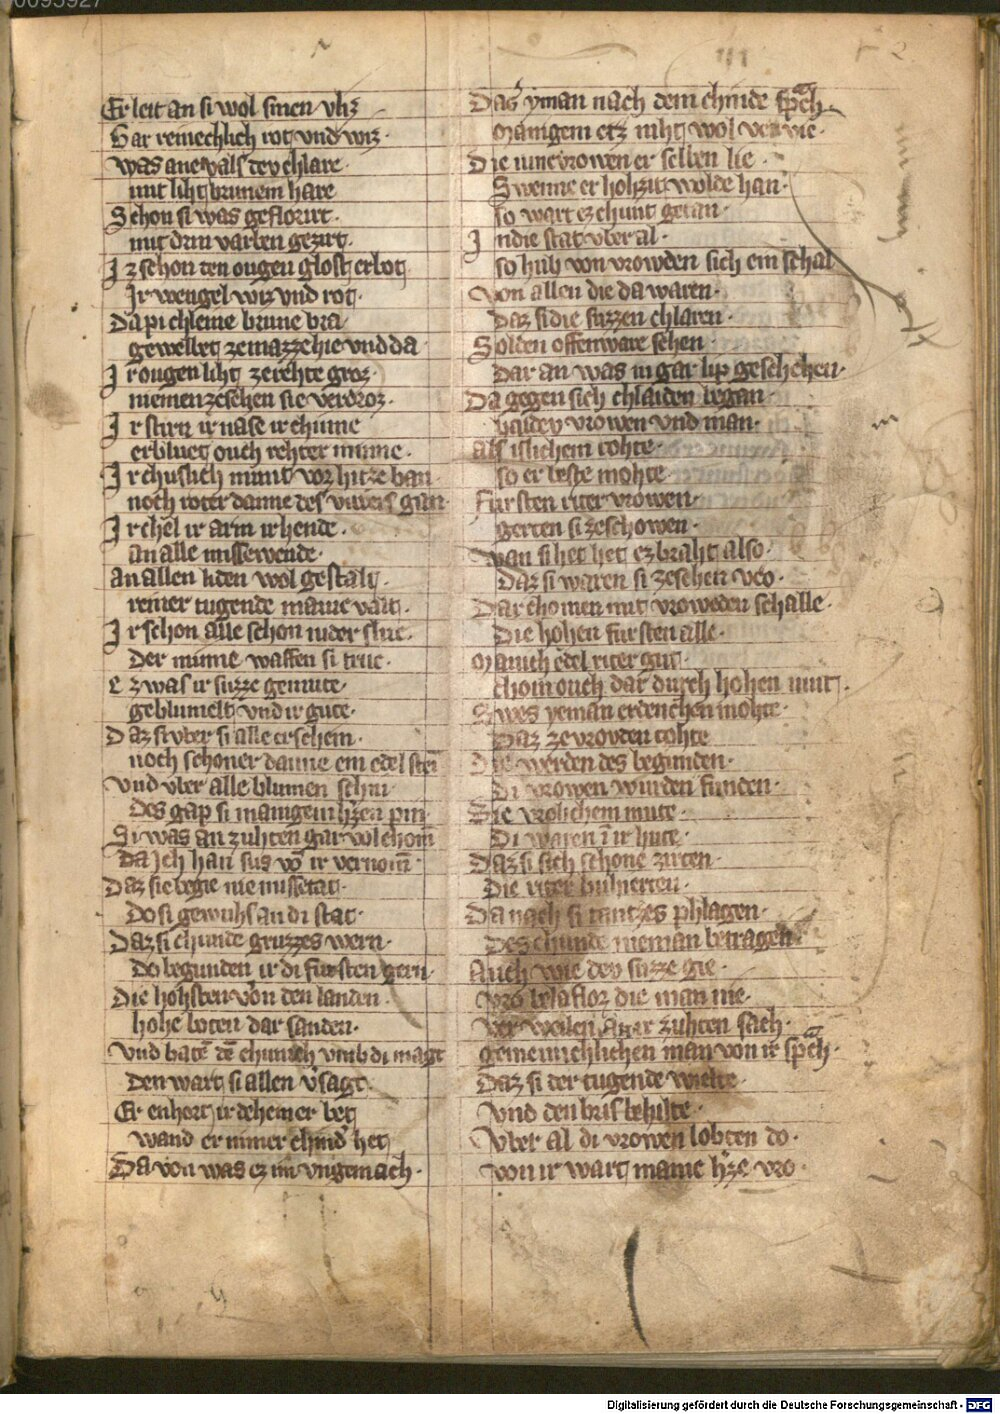 Er leit an si wol sinen vliz
Gar reinechlich rot vnd wiz
was ane vals dev chlare
mit liht brunem hare
Schon si was geflorirt
mit drin varben gezirt
Iz schon den ougen glost erbot
Ir wengel wiz vnd rot
Da pi chleine brune bra
gewelbet ze mazze hie vnd da
Ir ougen liht ze rehte groz
niemen zesehen sie verdroz
Ir stirn ir nase ir chinne
erbluet ouch rehter minne
Ir chuslich munt vor hitze bran
noch roter danne des viwers
Ir chel ir arm ir hende
an alle missewende
An allen liden wol gestalt
reiner tugende manicvalt
Ir schon alle schon nider sluc
Der minne waffen si truc
Ez was ir suzze gemute
geblumelt vnd ir gute
Daz si vber si alle erschein
noch schoner danne ein edel stein
Vnd vber alle blumen schin
Des gap si manigem h'zen pin
Si was an zuhten gar volchom
Da ich han sus vō ir vernom
Daz sie begie nie missetat
Do si gewuhs an di stat
Daz si chunde gruzzes wern
Do begunden ir di fursten gern
Die hohsten von den landen
hohe boten dar sanden
Vnd batē dē chunich vmb di magt
Den wart si allen v'sagt
Er enhort ir deheiner bet
wand er nimer chind' het
Da von was ez im vngemach
Daz yman nach dem chinde sp'ch
Manigem etz niht wol v'vie
Die iuncvrowen er selben lie
Swenne er hohzit wolde han
so wart ez chunt getan
In die stat vber al
so hub von vrowden sich ein schal
Von allen die da waren
Daz si die suzzen chlaren
Solden offenware sehen
Dar an was in gar lip geschehen
Da gegen sich chlaiden began
baidev vrowen vnd man
als islichem tohte
so er beste mohte
Fursten riter vrowen
gerten si zeschowen
wan si het ez braht also
Daz si waren si zesehen vro
Dar chomen mit vroweden schalle
Die hohen fursten alle
Manich edel riter gut
chom ouch dar durch hohen mut
Swes yeman erdenchen mohte
Daz ze vrovden tohte
Die werden des begunden
Di vrowen wurden funden
Sie vrolichem mute
Di waren ī ir hute
Daz si sich schone zirten
Die riter buhierten
Da nach si tantzes phlagen
Des chunde nieman betragen
Auch wie dev suzze gie
vro belaflor die man nie
ver weilen in ir zuhten sach
gemeinchlichen man von ir sp'ch
Daz si der tugende wielte
Vnd den bris behilte
Vber al di vrowen lobten do
von ir wart manic h'ze vro
Digitalisierung gefördert durch die Deutsche Forschungsgemeinschaft - DFG